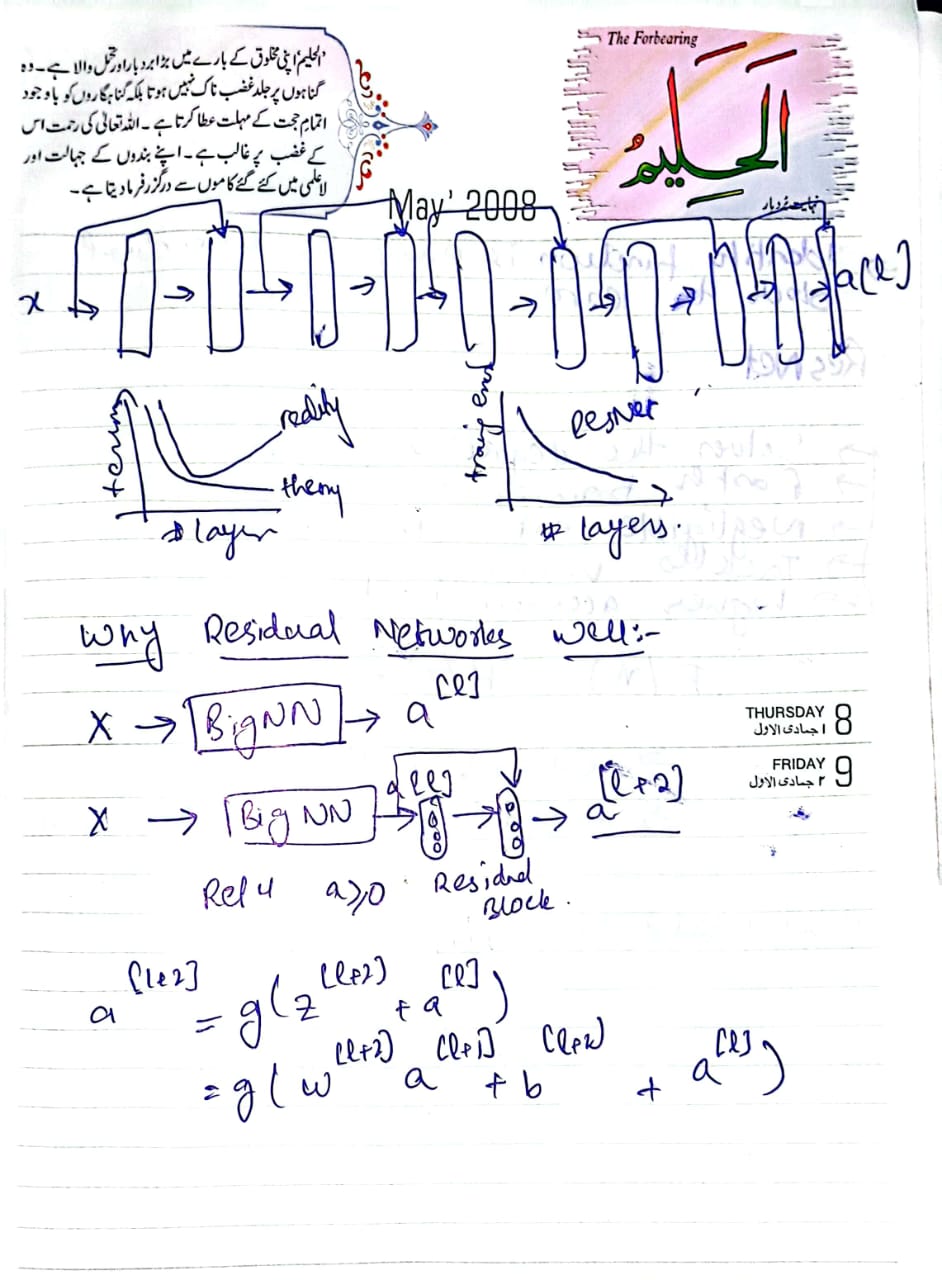 The Forbearing
اَلْحَلِيْمُ
نہایت بردبار
'الحلیم' اپنی مخلوق کے بارے میں بڑا بردبار اور تحمل والا ہے۔ وہ
گناہوں پر جلد غضب ناک نہیں ہوتا بلکہ گناہگاروں کو باوجود
اتمامِ حجت کے مہلت عطا کرتا ہے۔ اللہ تعالٰی کی رحمت اس
کے غضب پر غالب ہے۔ اپنے بندوں کے جہالت اور
لاعلمی میں کئے گئے کاموں سے درگزر فرما دیتا ہے۔
May' 2008
x → → → → → → → → → → a[l]
reality
theory
# layer
ResNet
# layers.
Why Residual Networks well:-
X → Big NN → a[l]
THURSDAY 8
۱ جمادی الاول
FRIDAY 9
۲ جمادی الاول
X → Big NN → a[l] → → a[l+2]
Relu a≥0 Residual
Block.
a[l+2] = g(z[l+2] + a[l])
= g(w[l+2] a[l+1] + b[l+2] + a[l])